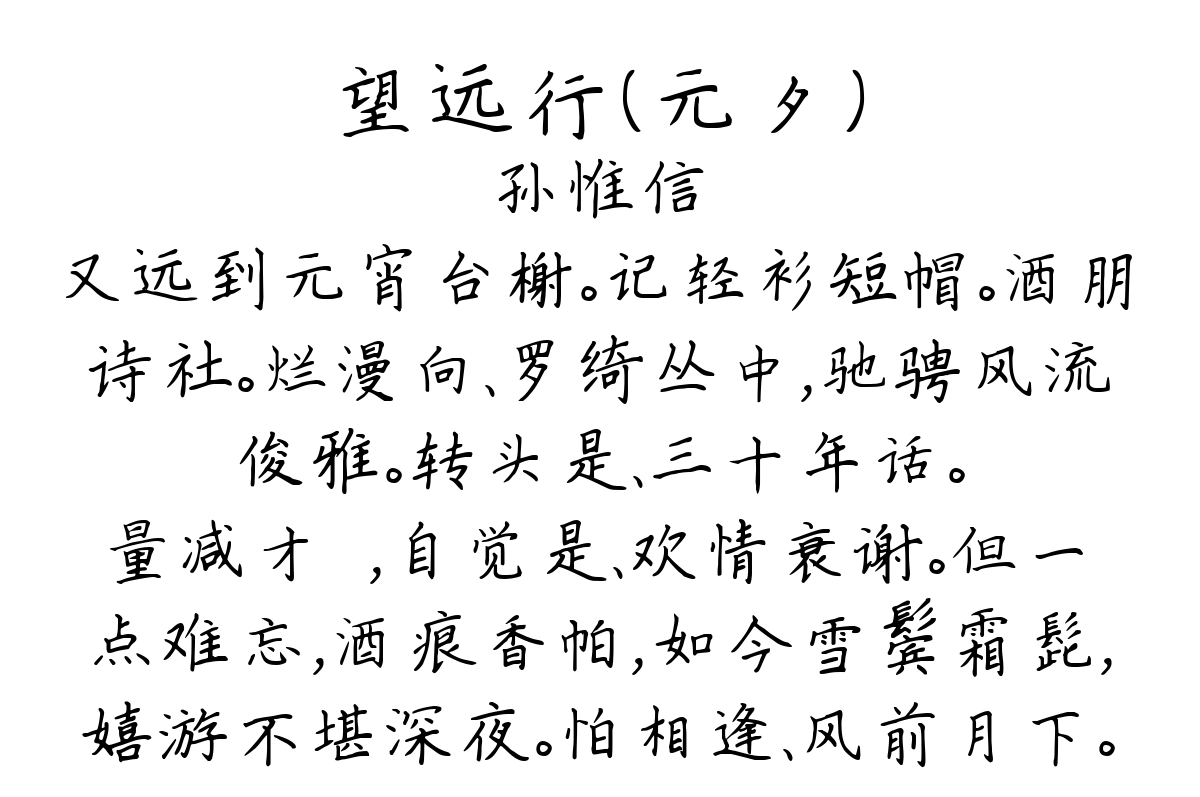 望远行(元夕)
孙惟信
又远到元宵台榭。记轻衫短帽。酒朋
诗社。烂漫向、罗绮丛中,驰骋风流
俊雅。转头是、三十年话。
量减才 ,自觉是、欢情衰谢。但一
点难忘,酒痕香帕,如今雪鬓霜髭,
嬉游不堪深夜。怕相逢、风前月下。